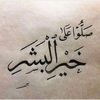 صَلُّوا عَلَى
خَيْرِ الْبَشَرِ